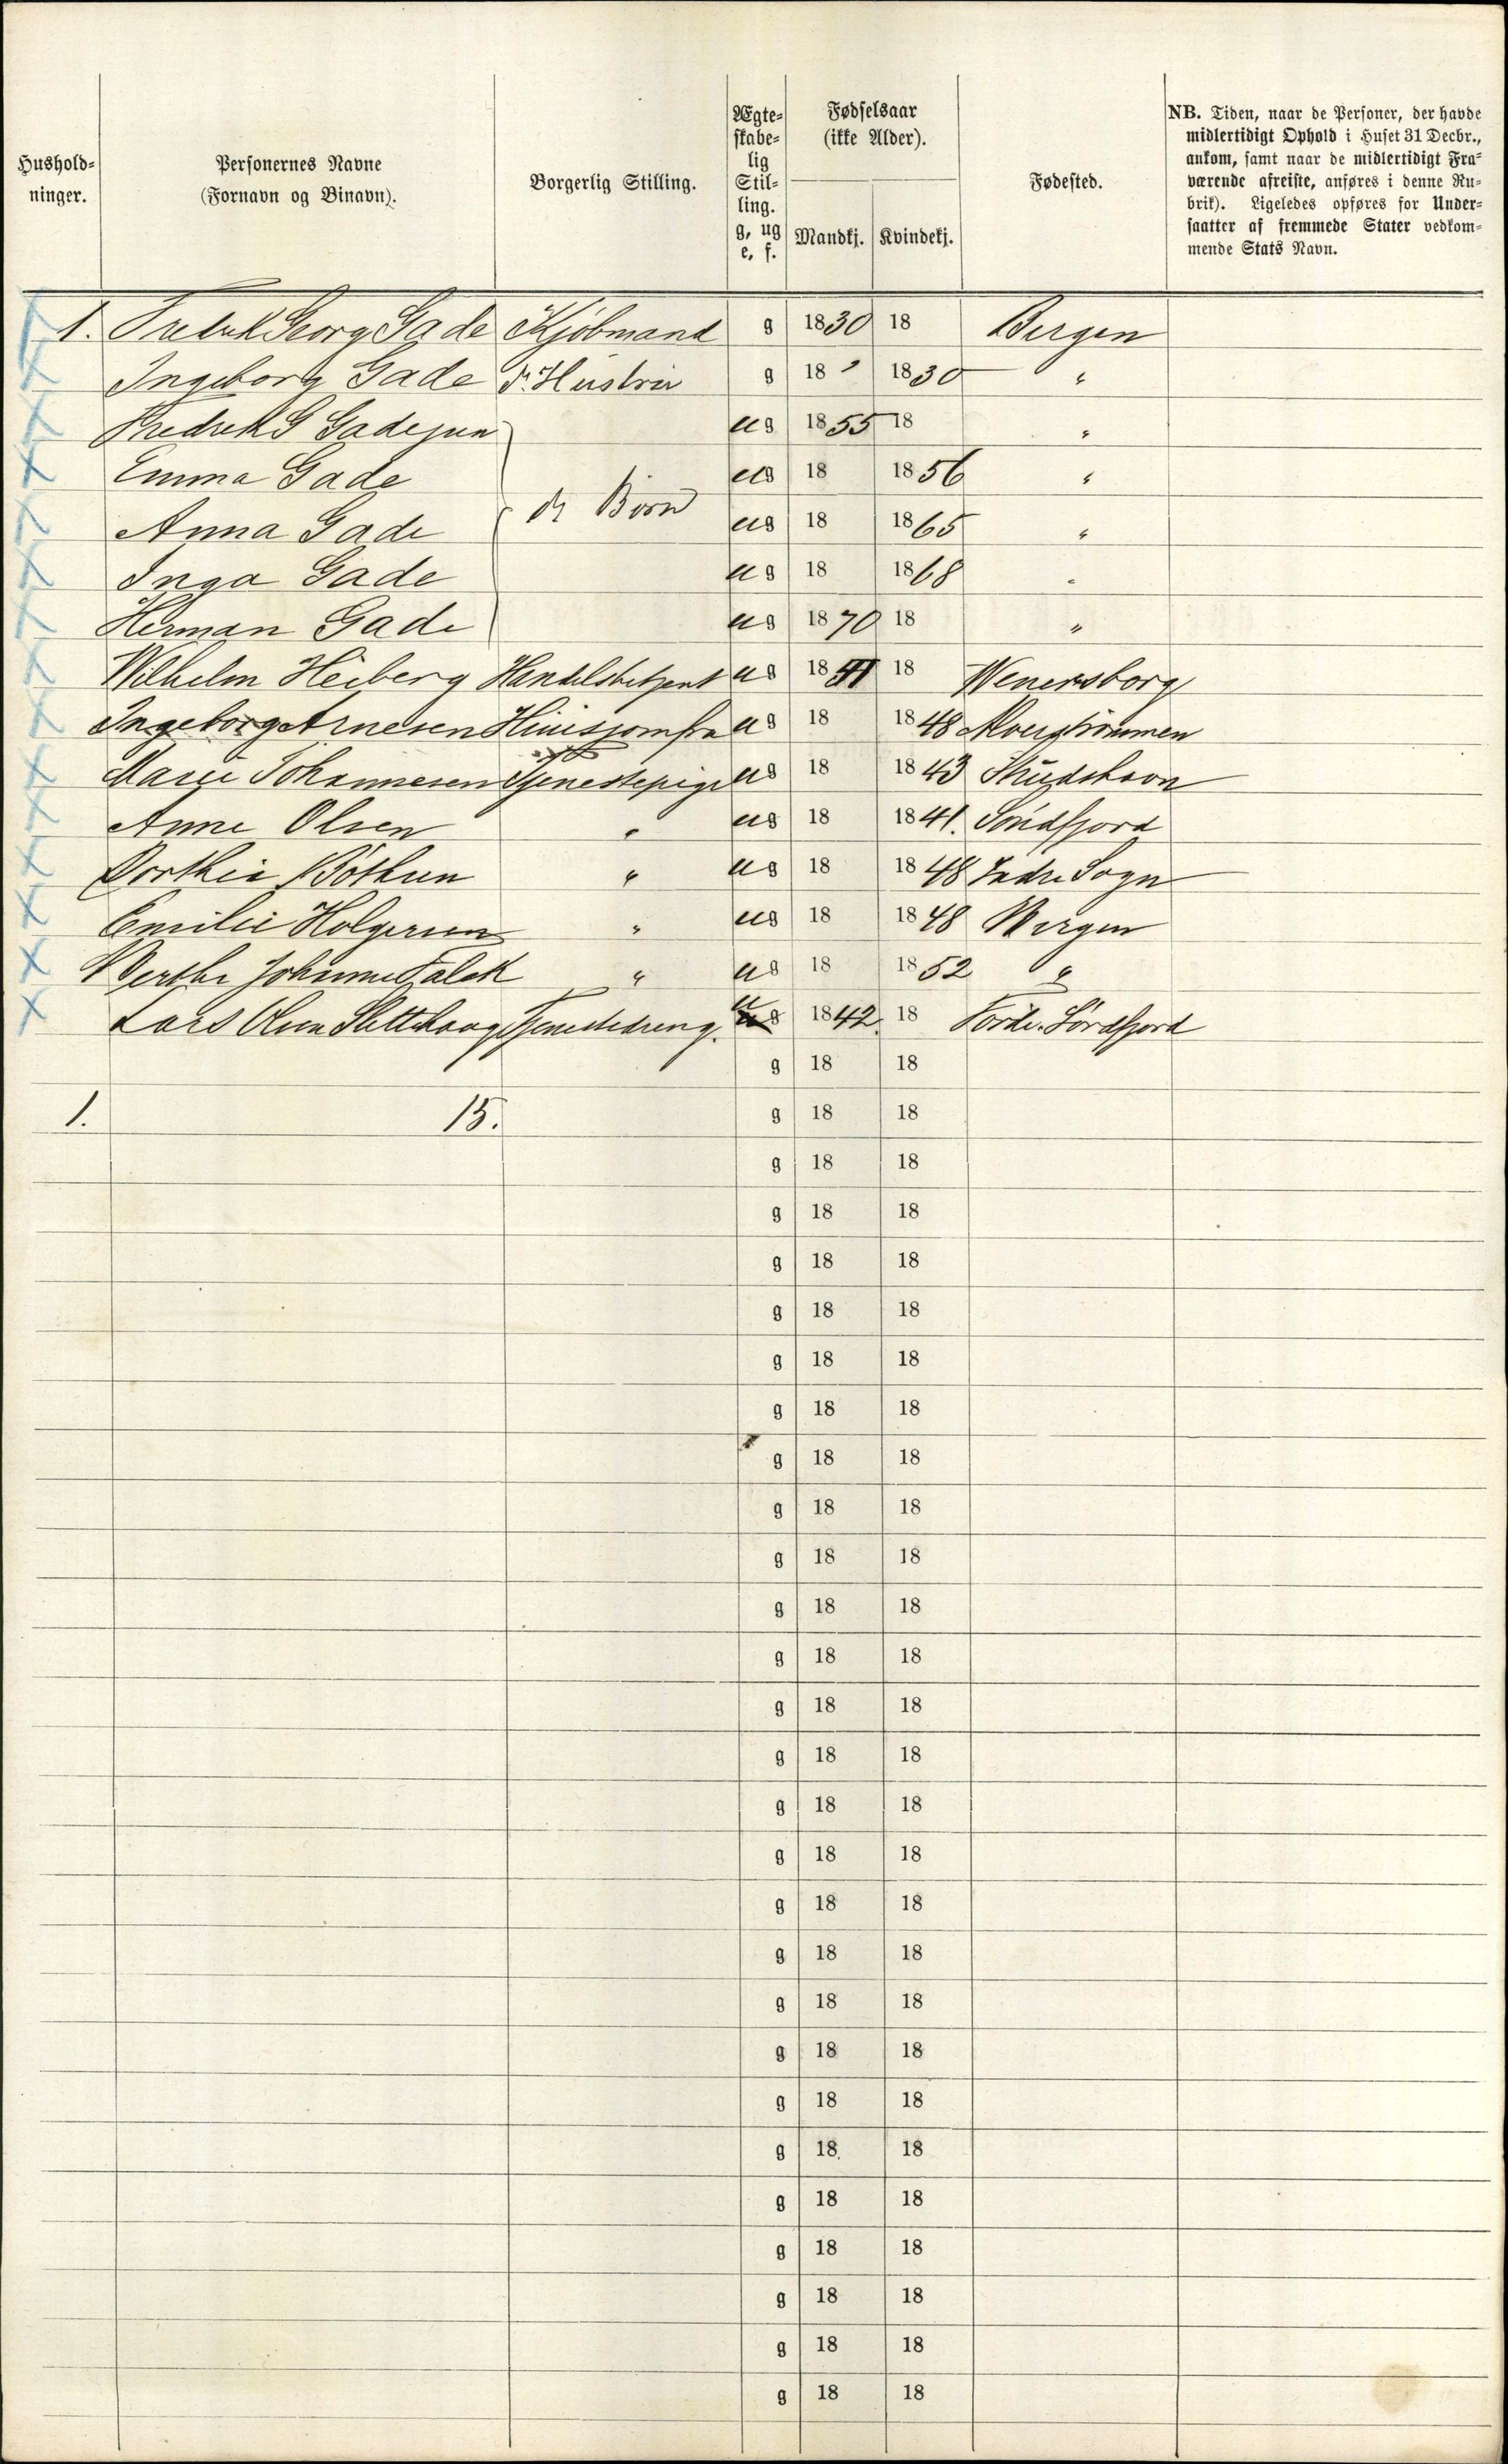 Hushold-
ninger.
Personernes Navne
(Fornavn og Binavn).
Borgerlig Stilling.
Ægte-
skabe-
lig
Stil-
ling.
g, ug
e, f.
Fødselsaar
(ikke Alder).
Mandkj. Kvindekj.
Fødested.
NB. Tiden, naar de Personer, der havde
midlertidigt Ophold i Huset 31 Decbr.,
ankom, samt naar de midlertidigt Fra-
værende afreiste, anføres i denne Ru-
brik). Ligeledes opføres for Under-
saatter af fremmede Stater vedkom-
mende Stats Navn.
1. Fredrik Georg Gade Kjøbmand g 1830 18 Bergen
Ingeborg Gade d. Hustru g 18 " 1830 "
Fredrik G Gade jun ug 1855 18 "
Emma Gade ug 18 1856 "
ds Børn
Anna Gade ug 18 1865 "
Inga Gade ug 18 1868 "
Herman Gade ug 1870 18 "
Wilhelm Heiberg Handelsbetjent ug 1841 18 Wenersborg
Ingeborg Arnesen Huusjomfru ug 18 1848 Alverstrømmen
Marie Johannesen Tjenestepige ug 18 1843 Skudshavn
Anne Olsen " ug 18 1841. Søndfjord
Dorthea Bøthun " ug 18 1848 Indre Sogn
Emilie Holgersen " ug 18 1848 Bergen
Berthe Johanne Falck " ug 18 1852 "
Lars Olsen Slettehaug Tjenestedreng. ug 1842. 18 Førde. Søndfjord
g 18 18
1. 15. g 18 18
g 18 18
g 18 18
g 18 18
g 18 18
g 18 18
g 18 18
g 18 18
g 18 18
g 18 18
g 18 18
g 18 18
g 18 18
g 18 18
g 18 18
g 18 18
g 18 18
g 18 18
g 18 18
g 18 18
g 18 18
g 18 18
g 18 18
g 18 18
g 18 18
g 18 18
g 18 18